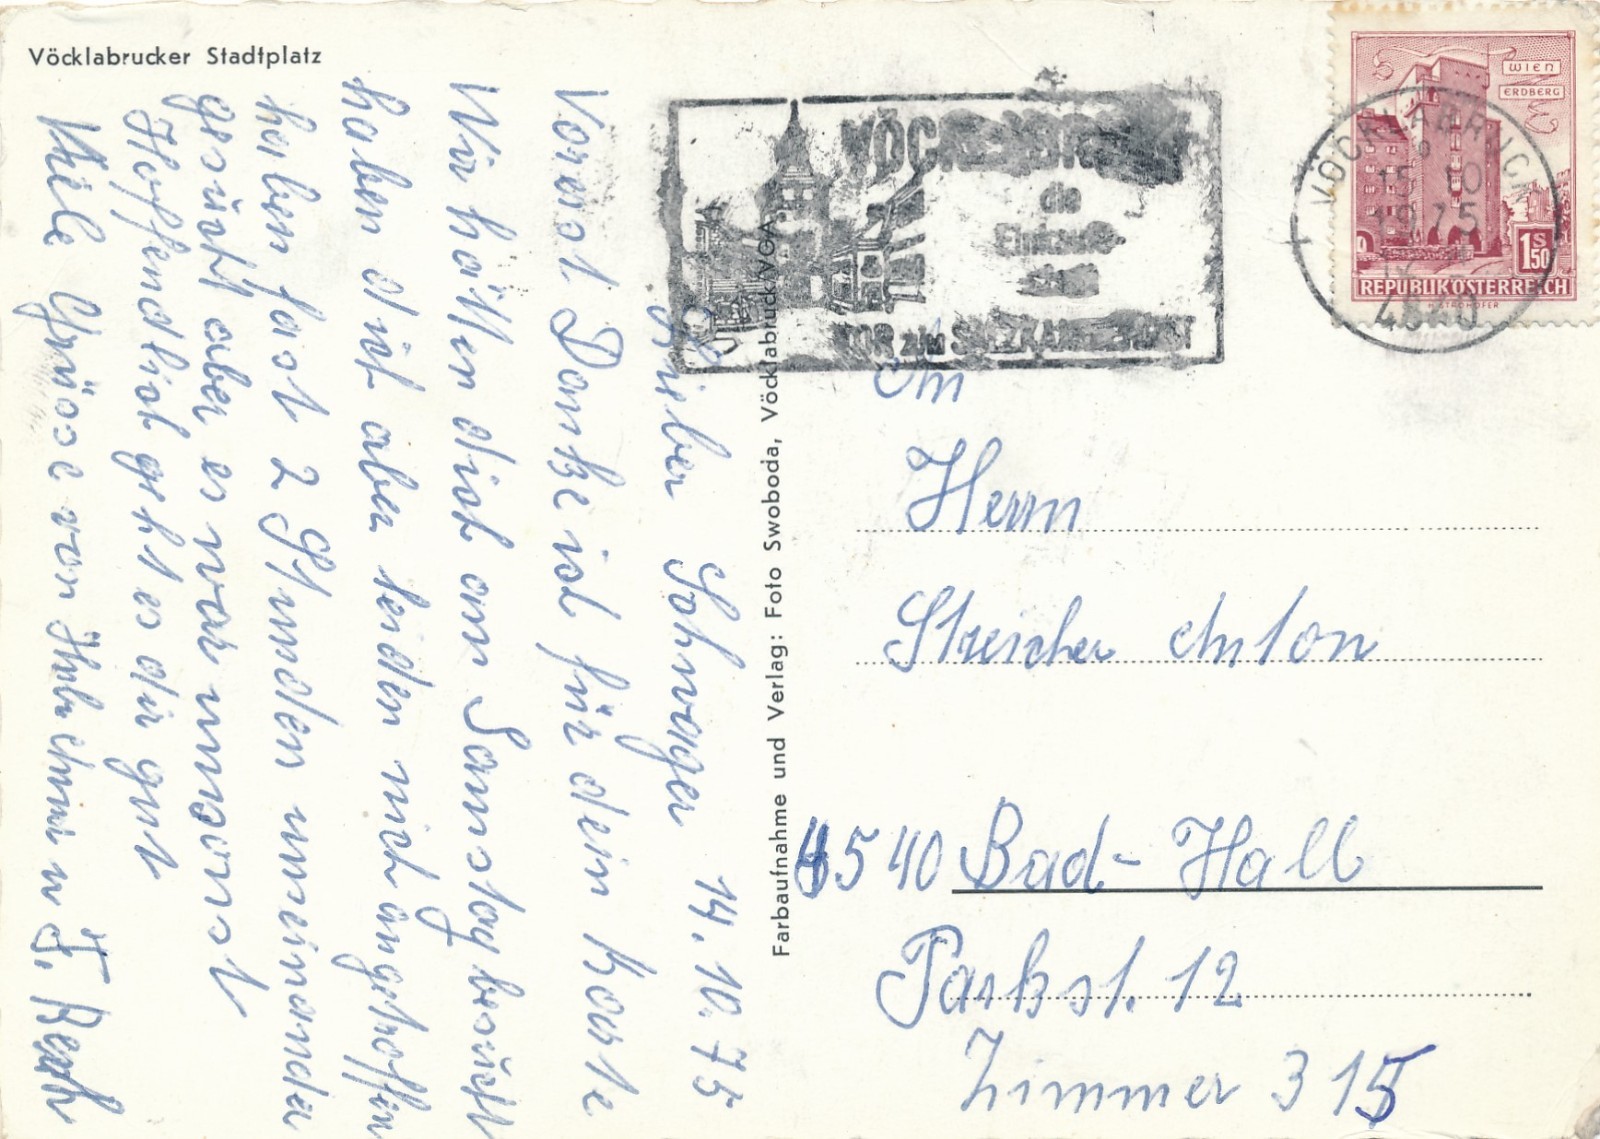 Vöcklabrucker Stadtplatz
Lieber Schwager 14.10.75
Vorest Danke ich für dein Karte
Wir hätten dich am Samstag besucht
haben dich aber leiden nich angetroffen
haben fast 2 Stunden umeinander
gesucht aber es war umsonst
Hoffendlich geht es dir gut
Viele Grüsse von
Farbaufnahme und Verlag: Foto Swoboda, Vöcklabruck/VGA
VÖCKLABRUCK
die
Einkaufs-
stadt
TOR zum SALZKAMMERGUT
VÖCKLABRUCK
15.10
1975
4840
WIEN
ERDBERG
1S50
REPUBLIK ÖSTERREICH
H. STROHOFER
An
Herrn
Streicher Anton
4540 Bad-Hall
Parkst. 12
Zimmer 315